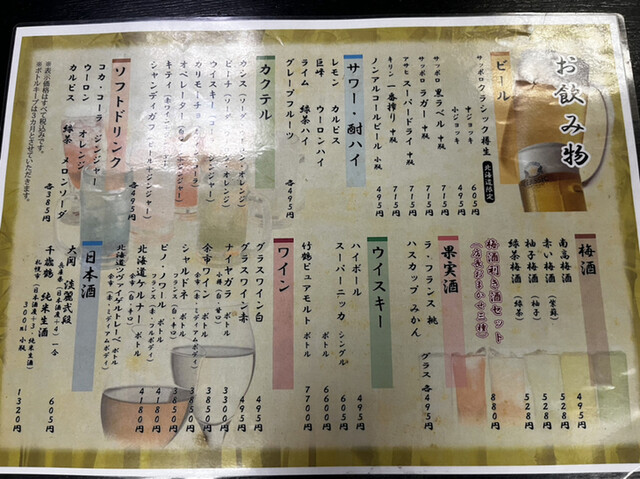 お飲み物
ビール
サッポロクラシック樽生 北海道限定
中ジョッキ 605円
小ジョッキ 495円
サッポロ 黒ラベル 中瓶 715円
サッポロ ラガー 中瓶 715円
アサヒ スーパードライ 中瓶 715円
キリン 一番搾り 中瓶 715円
ノンアルコールビール 小瓶 495円
サワー・酎ハイ
レモン カルピス
巨峰 ウーロンハイ
ライム 緑茶ハイ
グレープフルーツ
各495円
カクテル
カシス(ソーダ・ウーロン・オレンジ)
ピーチ(ソーダ・ウーロン・オレンジ)
ウイスキー・コーク
カリモーチョ
オペレーター
キティ
シャンディガフ(ビール+ジンジャー)
各495円
ソフトドリンク
コカ・コーラ ジンジャー
ウーロン オレンジ
カルピス 緑茶 メロンソーダ
各385円
※表示価格はすべて税込みです。
※ボトルキープは3カ月とさせていただきます。
梅酒
南高梅酒 495円
赤い梅酒(紫蘇) 528円
柚子梅酒(柚子) 528円
緑茶梅酒(緑茶) 528円
梅酒利き酒セット 880円
(店主おまかせ三種)
果実酒
ラ・フランス 桃
ハスカップ みかん
グラス 各495円
ウイスキー
ハイボール 495円
スーパーニッカ シングル 605円
ボトル 6600円
竹鶴ピュアモルト ボトル 7700円
ワイン
グラスワイン白 495円
グラスワイン赤 495円
ナイヤガラ ボトル 3300円
小樽(白・甘口)
余市ワイン ボトル 3850円
余市(赤・ミディアムボディ)
シャルドネ ボトル 3850円
フランス(白・辛口)
ピノ・ノワール ボトル 3850円
フランス(赤・フルボディ)
北海道ケルナー ボトル 4180円
北海道ツヴァイゲルトレーベ ボトル 4180円
余市(赤・ミディアムボディ)
日本酒
大関 淡麗弐段 一合 605円
千歳鶴 純米生酒 300ml 小瓶 1320円
札幌市(日本酒度+3・純米生酒)